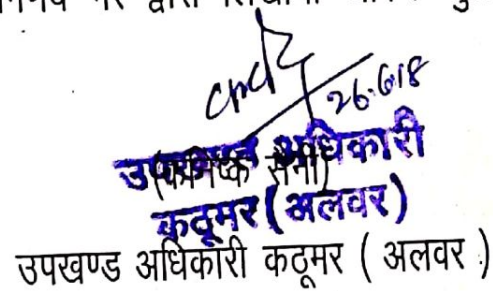 26.6.18
उपखण्ड अधिकारी
(कनिष्क सैनी)
कठूमर (अलवर)
उपखण्ड अधिकारी कठूमर ( अलवर )